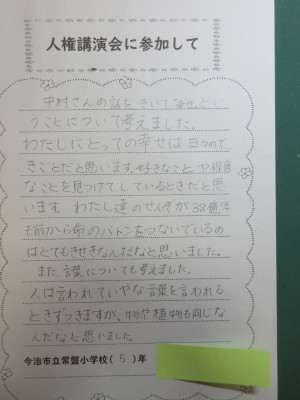 人権講演会に参加して
中村さんの話をきいて"幸せ"とい
うことについて考えました。
わたしにとっての幸せは日々ので
きごとだと思います。好きなことや得意
なことを見つけて、しているときだと思
います。わたし達のせんぞが38億年
も前から命のバトンをつないでいるの
はとてもきせきなんだなと思いました。
また、言葉についても考えました。
人は言われていやな言葉を言われる
ときずつきますが、物や植物も同じな
んだなと思いました。
今治市立常盤小学校(5)年